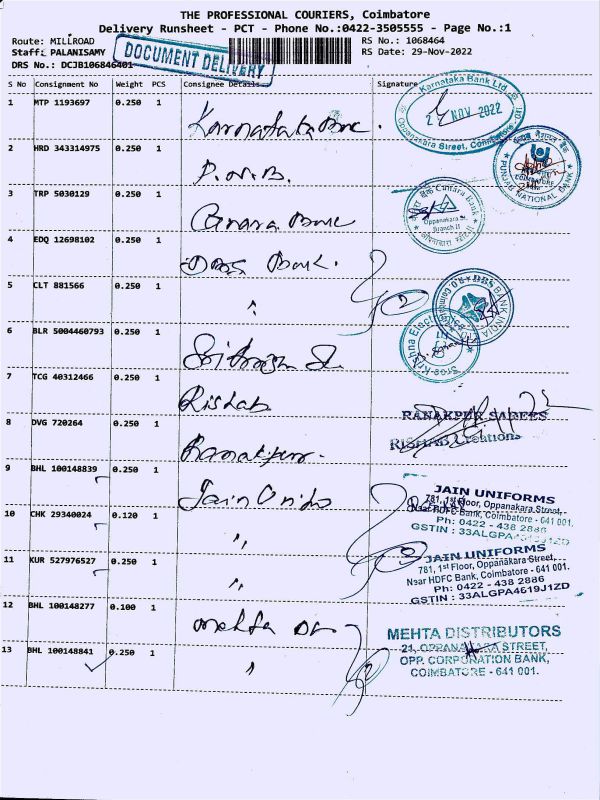 THE PROFESSIONAL COURIERS, Coimbatore
Delivery Runsheet - PCT - Phone No.:0422-3505555 - Page No.:1
Route: MILLROAD RS No.: 1068464
Staff: PALANISAMY RS Date: 29-Nov-2022
DRS No.: DCJB106846401
DOCUMENT DELIVERY
S No Consignment No Weight PCS Consignee Details Signature
1 MTP 1193697 0.250 1 Karnataka
Karnataka Bank Ltd.
NOV 2022
Oppanakara Street, Coimbatore
2 HRD 343314975 0.250 1 P.N.B.
PUNJAB NATIONAL BANK
3 TRP 5030129 0.250 1 Canara Bank
Canara Bank
Oppanakara St.
Branch II
4 EDQ 12698102 0.250 1 Bank.
5 CLT 881566 0.250 1 "
DBS BANK INDIA
6 BLR 5004460793 0.250 1
Sree Krishna
7 TCG 40312466 0.250 1 Rishab
RANAKPUR SAREES
8 DVG 720264 0.250 1
RISHAB Creations
9 BHL 100148839 0.250 1 Jain
JAIN UNIFORMS
781, 1st Floor, Oppanakara Street,
Near HDFC Bank, Coimbatore - 641 001.
Ph: 0422 - 438 2886
GSTIN : 33ALGPA4619J1ZD
10 CHK 29340024 0.120 1 "
11 KUR 527976527 0.250 1 "
JAIN UNIFORMS
781, 1st Floor, Oppanakara Street,
Near HDFC Bank, Coimbatore - 641 001.
Ph: 0422 - 438 2886
GSTIN : 33ALGPA4619J1ZD
12 BHL 100148277 0.100 1 Mehta
MEHTA DISTRIBUTORS
21, OPPANAKARA STREET,
OPP. CORPORATION BANK,
COIMBATORE - 641 001.
13 BHL 100148841 0.250 1 "